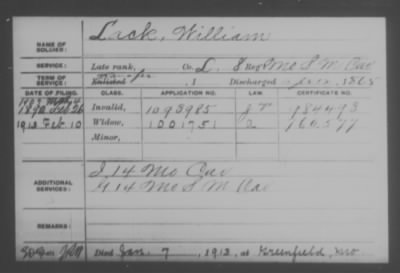 NAME OF SOLDIER: Lack, William
SERVICE: Late rank, Co. L. 8 Reg't Mo S M Cav
TERM OF SERVICE: Enlisted , 1 Discharged , 1865
DATE OF FILING. CLASS. APPLICATION NO. LAW. CERTIFICATE NO.
1892 Feb 26 Invalid, 1093985 484493
1913 Feb 10 Widow, 1001751 2
Minor,
ADDITIONAL SERVICES: I 14 Mo Cav
G 14 Mo S M Cav
REMARKS:
Died Jan. 7, 1913, at Greenfield, Mo.